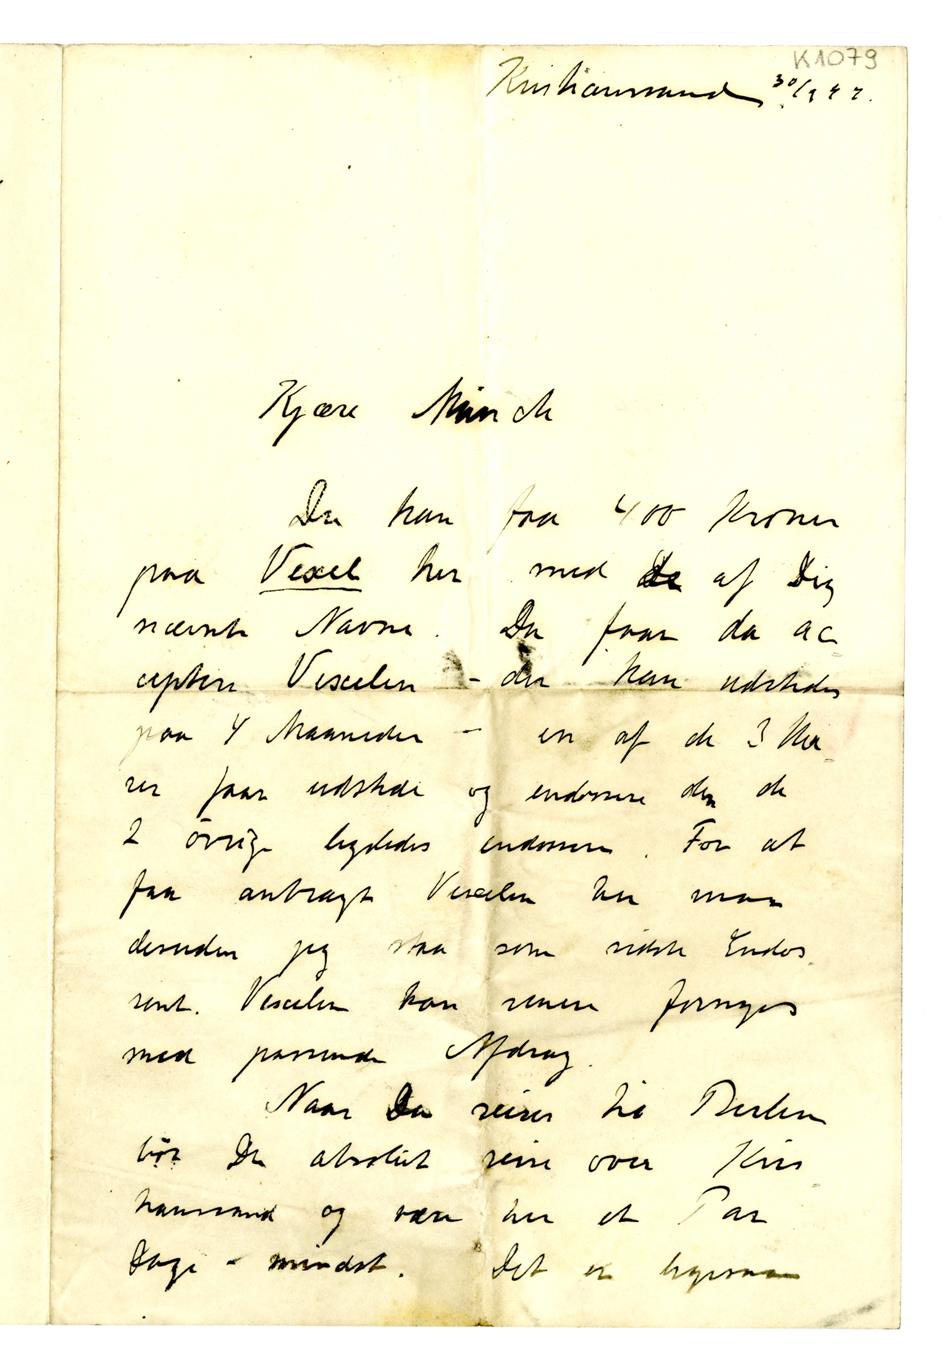 K1079
Kristianssand 30/9 97.
Kjære Munch
Du kan faa 400 Kroner
paa Vexel her med De af Dig
nævnte Navne. Du faar da ac-
ceptere Vexelen - der kan udstedes
paa 4 Maaneder - en af de 3 Her-
rer faar udstede og endossere den de
2 övrige ligeledes endossere. For at
faa anbragt Vexelen her maa
desuden jeg staa som sidste Endos-
sent. Vexelen kan senere fornyes
med passende Afdrag.
Naar Du reiser til Berlin
bör Du absolut reise over Kris-
tianssand og være her et Par
Dage - mindst. Det er ligesaa